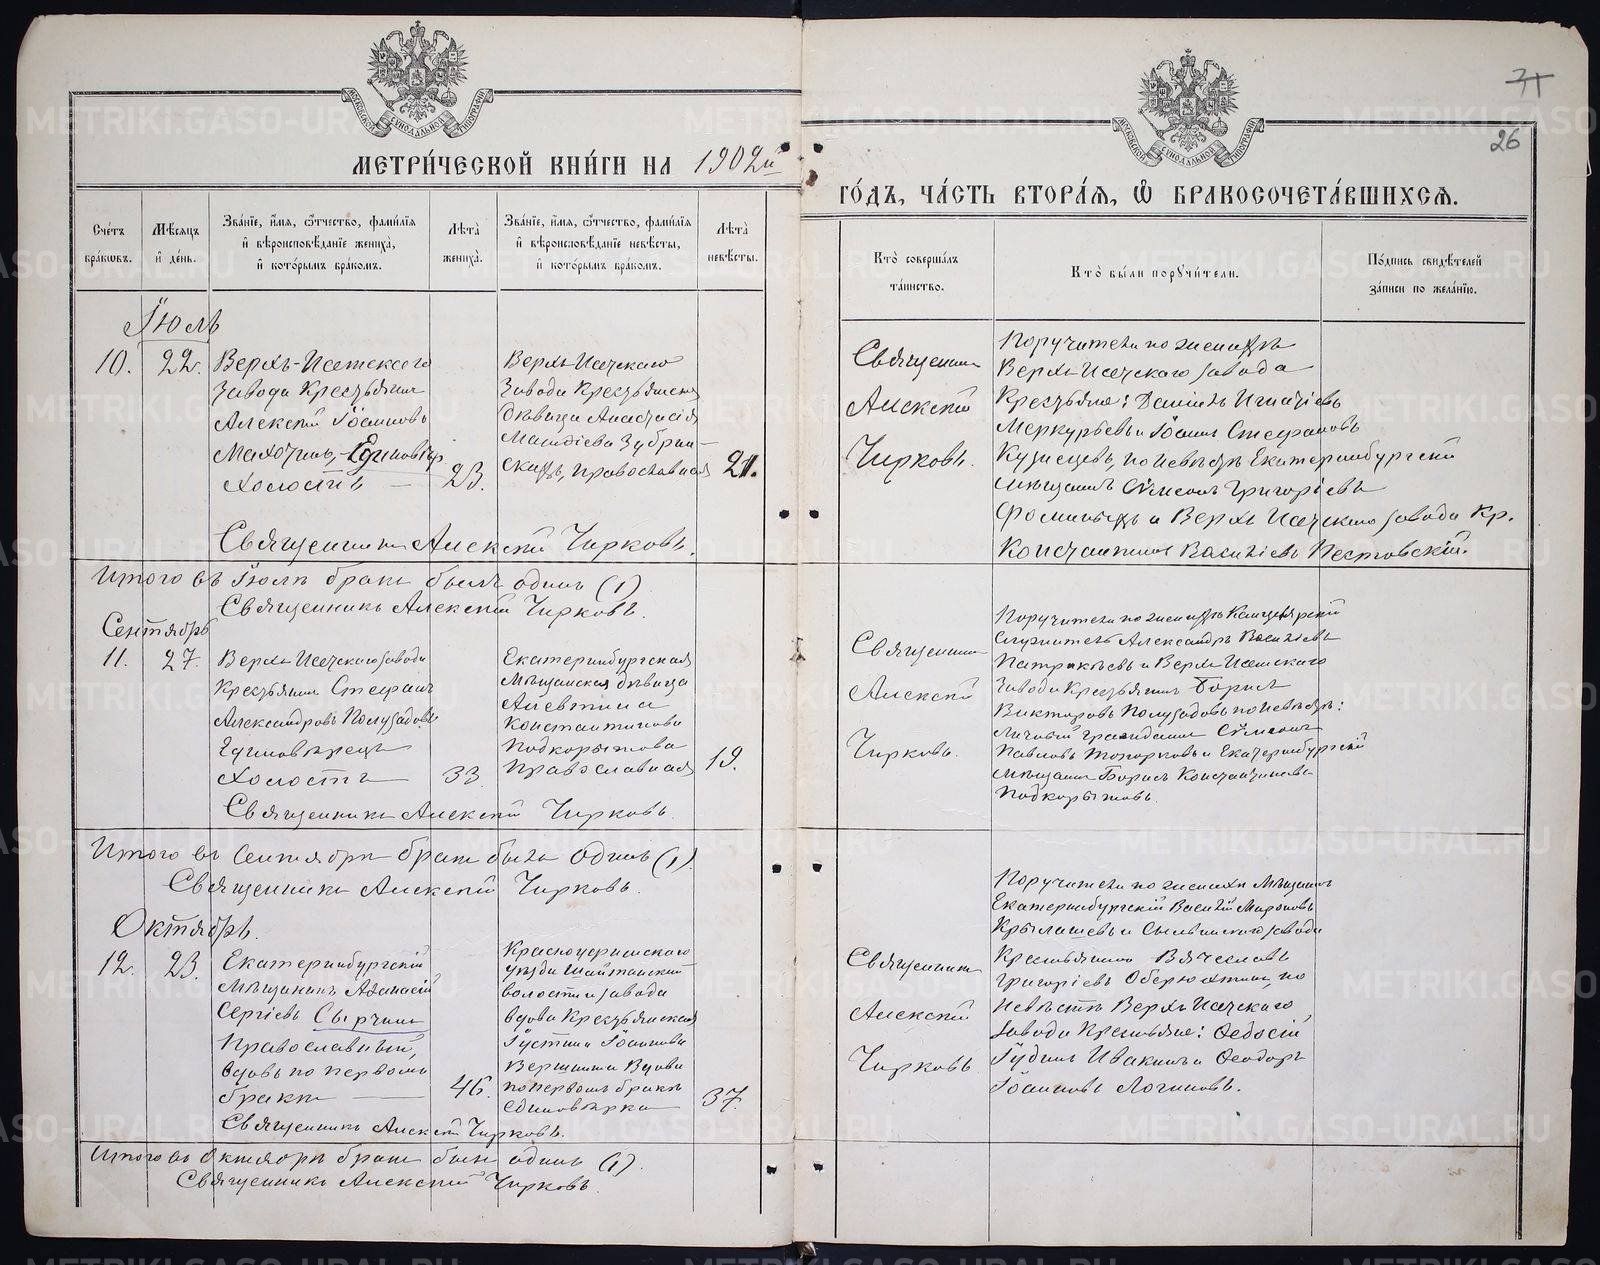 МЕТРИ́ЧЕСКОЙ КНИ́ГИ НА 1902й
ГО́ДЪ, ЧА́СТЬ ВТОРА́Я, Ѡ БРАКОСОЧЕТА́ВШИХСЯ.
26
Сче́тъ бра́ковъ.
Мѣ́сяцъ и де́нь.
Зва́нїе, и́мя, ѻ́тчество, фами́лїя и вѣроисповѣ́данїе жениха̀, и кото́рымъ бра́комъ.
Лѣта̀ жениха̀.
Зва́нїе, и́мя, ѻ́тчество, фами́лїя и вѣроисповѣ́данїе невѣ́сты, и кото́рымъ бра́комъ.
Лѣта̀ невѣ́сты.
Кто̀ соверша́лъ та́инство.
Кто̀ бы́ли поручи́тели.
По́дпись свидѣ́телей за́писи по жела́нїю.
Іюль
10. 22.
Верхъ-Исетскаго
завода Крестьянин
Алексій Іоанновъ
Махотинъ, Единовѣр
Холостъ — 23.
Верхъ Исетскаго
завода Крестьянская
дѣвица Анастасія
православная 21.
Священникъ Алексій Чирковъ.
Священник
Алексій
Чирковъ.
Поручители по женихѣ
Верхъ Исетскаго завода
Крестьяне: Даніилъ Игнатіевъ
Меркурьевъ и Іоаннъ Стефановъ
Кузнецовъ, по невѣстѣ Екатеринбургскій
мѣщанинъ Сѵмеонъ Григоріевъ
и Верхъ Исетскаго завода Кр.
Константинъ Василіевъ
Итого въ Іюлѣ бракъ былъ одинъ (1)
Священникъ Алексій Чирковъ.
Сентябрь
11. 27.
Верхъ Исетскаго завода
Крестьянинъ Стефанъ
Александровъ Полузадовъ
Единовѣрецъ
Холостъ — 33.
Екатеринбургская
Мѣщанская дѣвица
Алевтина
Константинова
Подкорытова
Православная 19.
Священникъ Алексій Чирковъ.
Священник
Алексій
Чирковъ.
Поручители по женихѣ Канцелярскій
служитель Александръ Василіевъ
Патракѣевъ и Верхъ Исетскаго
завода Крестьянинъ Борисъ
Викторовъ Полузадовъ по невѣстѣ:
Личный гражданин Сѵмеонъ
Павловъ Топорковъ и Екатеринбургскій
мѣщанин Борисъ Константиновъ
Подкорытовъ.
Итого въ Сентябрѣ бракъ былъ одинъ (1).
Священникъ Алексій Чирковъ.
Октябрь.
12. 23.
Екатеринбургскій
Мѣщанинъ Аѳанасій
Сергіевъ Сырчинъ
Православный,
вдовъ по первомъ
бракѣ — 46.
Красноуфимскаго
уѣзда Шайтанской
волости и завода
вдова Крестьянская
Іустина Іоаннова
Вершинина Вдова
по первомъ бракѣ
единовѣрка — 37.
Священникъ Алексій Чирковъ.
Священник
Алексій
Чирковъ
Поручители по женихѣ мѣщанинъ
Екатеринбургскій Василій Мироновъ
Крылашевъ и Сылвинскаго завода
Крестьянинъ Вячеславъ
Григоріевъ Оберюхтинъ, по
невѣстѣ Верхъ Исетскаго
завода Крестьяне: Ѳедосій
Іудинъ Ивакинъ и Ѳеодоръ
Іоанновъ Логиновъ.
Итого въ Октябрѣ бракъ былъ одинъ (1).
Священникъ Алексій Чирковъ.
METRIKI.GASO-URAL.RU